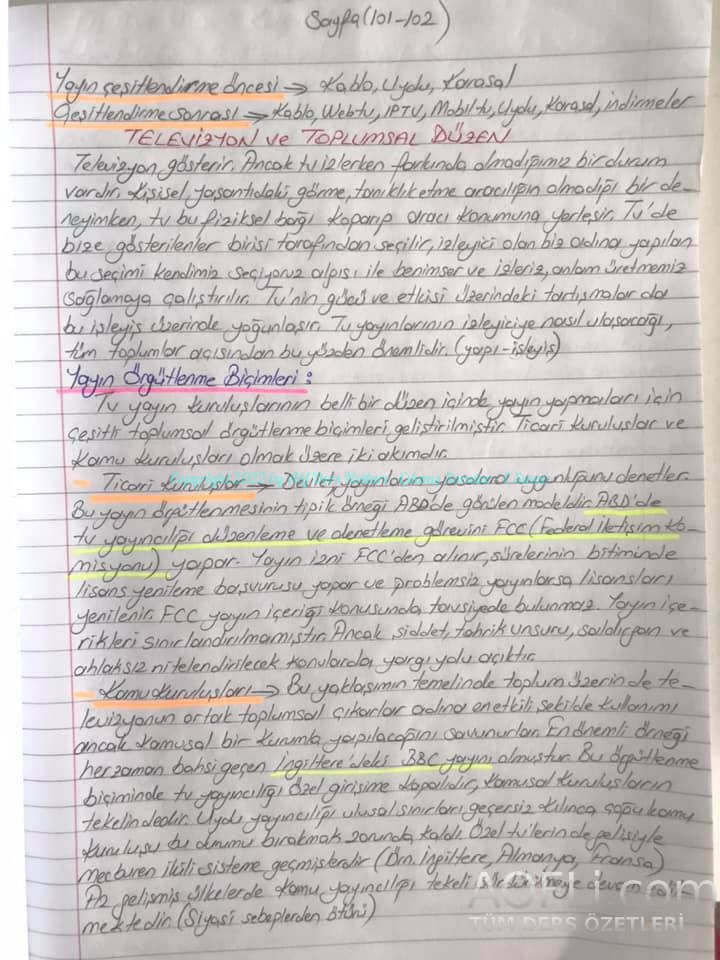 Sayfa(101-102)
Yayın çeşitlendirme öncesi → Kablo, Uydu, Karasal
Çeşitlendirme sonrası → Kablo, Webtv, IPTV, Mobil tv, Uydu, Karasal, indirmeler
TELEVİZYON ve TOPLUMSAL DÜZEN
Televizyon gösterir. Ancak tv izlerken farkında olmadığımız bir durum
vardır. Kişisel yaşantıdaki görme, tanıklık etme aracılığın olmadığı bir de-
neyimken, tv bu fiziksel bağı koparıp aracı konumuna yerleşir. Tv'de
bize gösterilenler birisi tarafından seçilir, izleyici olan biz adına yapılan
bu seçimi kendimiz seçiyoruz algısı ile benimser ve izleriz, anlam üretmemiz
sağlamaya çalıştırılır. Tv'nin gücü ve etkisi üzerindeki tartışmalar da
bu işleyiş üzerinde yoğunlaşır. Tv yayınlarının izleyiciye nasıl ulaşacağı,
tüm toplumlar açısından bu yüzden önemlidir. (yapı-işleyiş)
Yayın Örgütlenme Biçimleri:
Tv yayın kuruluşlarının belli bir düzen içinde yayın yapmaları için
çeşitli toplumsal örgütlenme biçimleri geliştirilmiştir. Ticari kuruluşlar ve
Kamu kuruluşları olmak üzere iki akımdır.
- Ticari Kuruluşlar → Devlet, yayınların yasalara uygunluğunu denetler.
Bu yayın örgütlenmesinin tipik örneği ABD'de görülen modeldir. ABD'de
tv yayıncılığı düzenleme ve denetleme görevini FCC (Federal iletişim Ko-
misyonu) yapar. Yayın izni FCC'den alınır, sürelerinin bitiminde
lisans yenileme başvurusu yapar ve problemsiz yayınlarsa lisansları
yenilenir. FCC yayın içeriği konusunda tavsiyede bulunmaz. Yayın içe-
rikleri sınırlandırılmamıştır. Ancak, şiddet, tahrik unsuru, saldırgan ve
ahlaksız nitelendirilecek konularda yargı yolu açıktır.
- Kamu kuruluşları → Bu yaklaşımın temelinde toplum üzerinde te-
levizyonun ortak toplumsal çıkarlar adına en etkili şekilde kullanımı
ancak kamusal bir kurumla yapılacağını savunurlar. En önemli örneği
her zaman bahsi geçen İngiltere'deki BBC yayını olmuştur. Bu örgütlenme
biçiminde tv yayıncılığı özel girişime kapalıdır, kamusal kuruluşların
tekelindedir. Uydu yayıncılığı ulusal sınırları geçersiz kılınca, çoğu kamu
kuruluşu bu durumu bırakmak zorunda kaldı. Özel tv'lerin de gelişiyle
mecburen ikili sisteme geçmişlerdir (Örn. İngiltere, Almanya, Fransa)
Az gelişmiş ülkelerde kamu yayıncılığı tekeli sürdürülmeye devam et-
mektedir (Siyasi sebeplerden ötürü)
AOFLi.com
TÜM DERS ÖZETLERİ